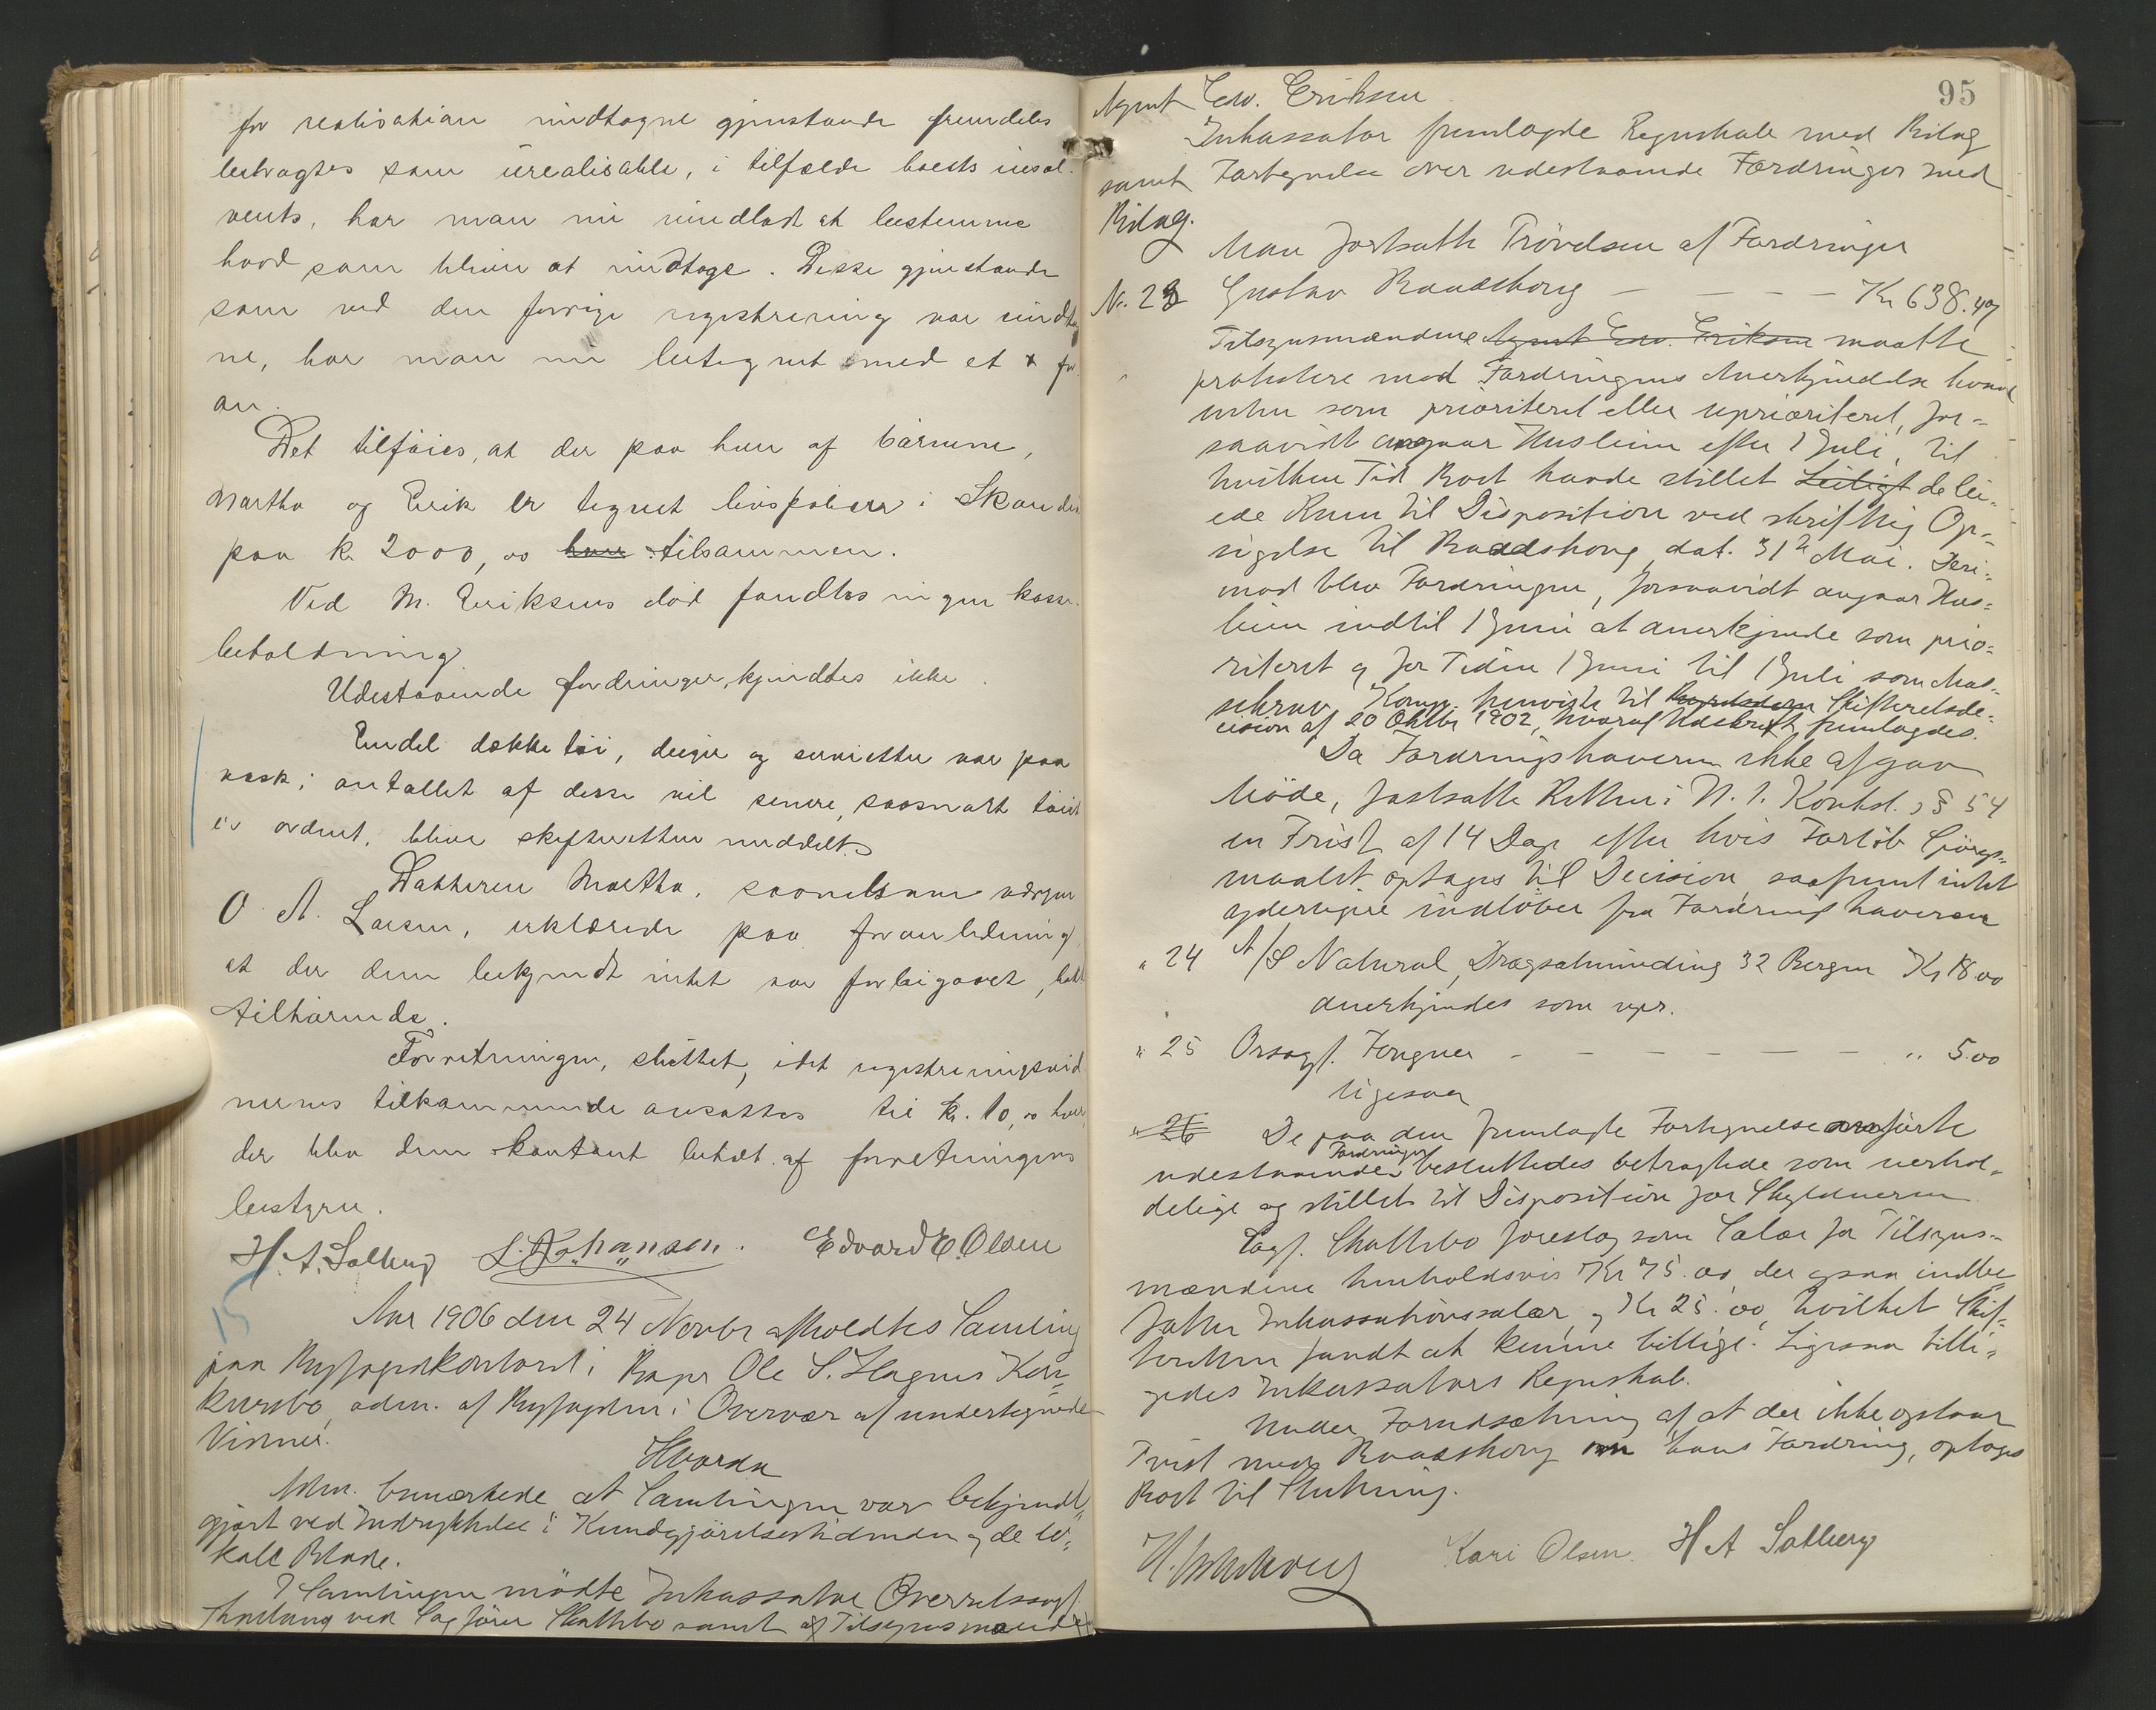 for realisation undtagne gjenstande fremdeles
betragtes som urealisable, i tilfælde boets insol-
vents, har man nu undladt at bestemme
hvad som bliver at undtage. Disse gjenstande
som ved den forrige registrering var undtag
ne, har man nu betegnet med et x for
an.
Det tilføies, at der paa hver af børnene,
Martha og Erik er tegnet livspolicer i Skandia
paa kr. 2000,00 hver tilsammen.
Ved M. Eriksens død fandtes ingen kasse-
beholdning.
Udestaaende fordringer kjendtes ikke.
Endel dækketøi, duger og servietter var paa
vask; antallet af disse vil senere, saasnart tøiet
er ordnet, blive skifteretten meddelt.
Datteren Martha, saavelsom værgen
O. A. Larsen, erklærede paa foranledning
at der dem bekjendt intet var forbigaaet, boet
tilhørende.
Forretningen sluttet, idet registreringsvid
nernes tilkommende ansattes til kr. 10,00 hver,
der blev dem kontant betalt af forretningens
bestyrer.
H. A. Solberg L. Johansen. Edvard E. Olsen
15
Aar 1906 den 24 Novbr afholdtes Samling
paa Byfogedkontoret i Kapr Ole S. Hagnes Kon-
kursbo, adm. af Byfogden i Overvær af undertegnede
Vidner.
Hvorda
Adm. bemærkede at Samlingen var bekjendt-
gjort ved Indrykkelse i Kundgjørelsestidenden og de lo-
kale Blade.
I Samlingen mødte Inkassator Overretssagf.
ved Sagfører Skattebo samt af Tilsynsmænde
95
Agent Edv. Eriksen
Inkassator fremlagde Regnskab med Bilag
samt Fortegnelse over udestaaende Fordringer med
Bilag.
Man fortsatte Prøvelsen af Fordringer
No. 23 Gustav Raadshoug — — — — Kr 638.47
Tilsynsmændene Agent Edv. Eriksen maatte
protestere mod Fordringens Anerkjendelse hverken
enten som prioriteret eller uprioriteret, for-
saavidt angaar Husleien efter 1 Juli, til
hvilken Tid Boet havde stillet Leiligt de lei-
ede Rum til Disposition ved skriftlig Op-
sigelse til Raadshoug dat. 31te Mai. Deri-
mod blev Fordringen, forsaavidt angaar Hus-
leien indtil 1 Juni at anerkjende som prio-
riteret og for Tiden 1 Juni til 1 Juli som Mas-
sekrav. Komp. henviste til Skifteretsde-
cision af 20 Oktbr 1902, hvoraf Udskrift fremlagdes.
Da Fordringshaveren ikke afgav
Møde, fastsatte Retten i H. t. Konkl. § 54
en Frist af 14 Dage efter hvis Forløb Spørgs-
maalet optages til Decision, saafremt intet
yderligere indløber fra Fordringshaveren
" 24 A/S Natural, Dragsalmending 32 Bergen Kr 18.00
anerkjendes som upr.
" 25 Orsagf. Fougner — — — — — — " 5.00
ligesaa
" 26 De paa den fremlagte Fortegnelse anførte
udestaaende Fordringer besluttedes betragtede som uerhol-
delige og stillet til Disposition for Skyldneren
Sagf. Skattebo foreslog som Salær for Tilsyns-
mændene henholdsvis Kr 75.00, der ogsaa indbe-
fatter Inkassationssalær, og Kr 25.00, hvilket Skif-
teretten fandt at kunne billige. Ligesaa billi-
gedes Inkassators Regnskab.
Under Forudsætning af at der ikke opstaar
Tvist med Raadshoug om hans Fordring, optages
Boet til Slutning.
Kari Olsen. H A Solberg